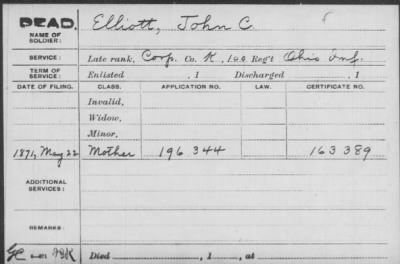 DEAD.
NAME OF SOLDIER:
Elliott, John C.
SERVICE:
Late rank, Corp. Co. K, 120 Reg't Ohio Inf.
TERM OF SERVICE:
Enlisted , 1 Discharged , 1
DATE OF FILING. CLASS. APPLICATION NO. LAW. CERTIFICATE NO.
Invalid,
Widow,
Minor,
1871, May 22 Mother 196 344 163 389
ADDITIONAL SERVICES:
REMARKS:
Died , 1 , at